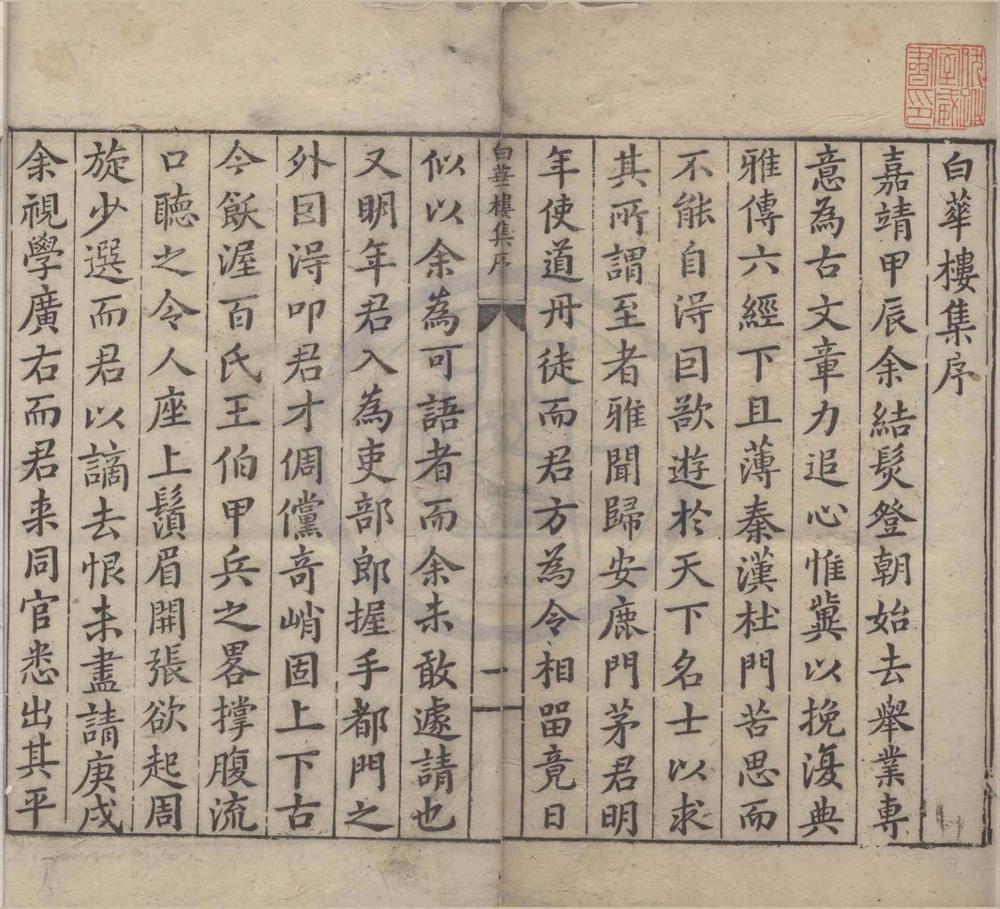 白華樓集序
嘉靖甲辰余結髮登朝始去舉業專
意為古文章力追心惟冀以挽復典
雅傳六經下且薄秦漢杜門苦思而
不能自淂囙欲遊於天下名士以求
其所謂至者雅聞歸安鹿門茅君明
年使道丹徒而君方為令相畱竟日
白華樓集序
一
似以余為可語者而余未敢遽請也
又明年君入為吏部郎握手都門之
外囙淂叩君才倜儻竒峭固上下古
今飫渥百氏王伯甲兵之畧撑腹流
口聽之令人座上鬚眉開張欲起周
旋少選而君以謫去恨未盡請庚戌
余視學廣右而君来同官悉出其平